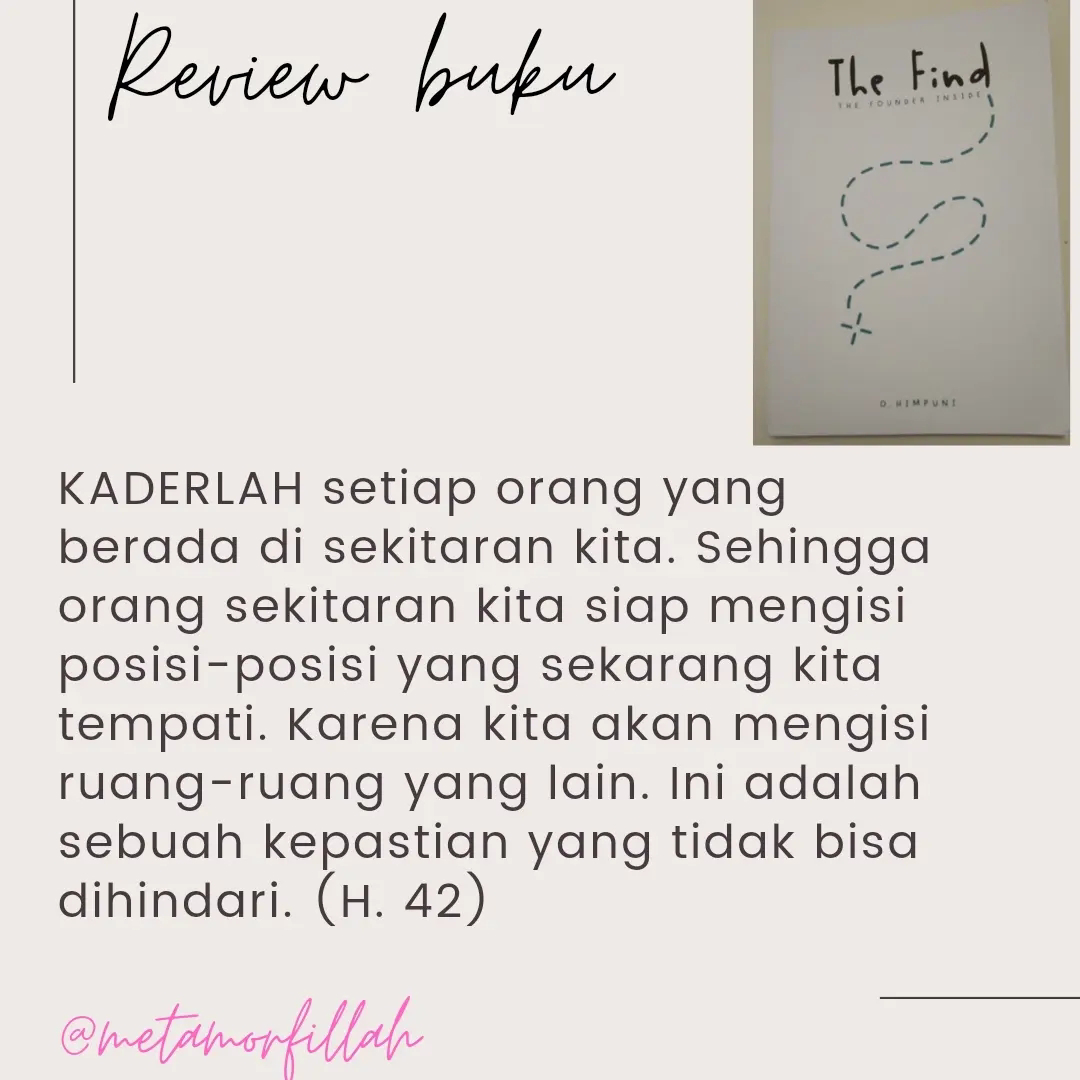 Review buku
The Find
THE FOUNDER INSIDE
O. HIMPUNI
KADERLAH setiap orang yang
berada di sekitaran kita. Sehingga
orang sekitaran kita siap mengisi
posisi-posisi yang sekarang kita
tempati. Karena kita akan mengisi
ruang-ruang yang lain. Ini adalah
sebuah kepastian yang tidak bisa
dihindari. (H. 42)
@metamorfillah